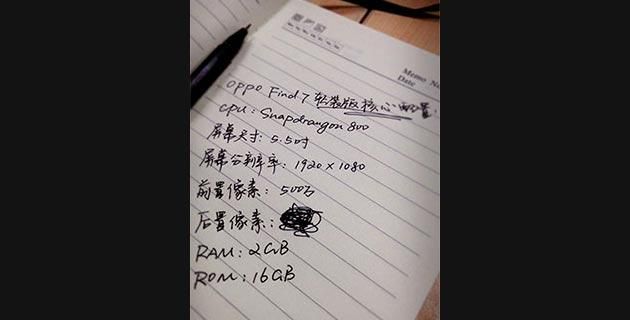 Memo No
Date
OPPO Find 7 轻装版核心配置:
CPU: Snapdrangon 800
屏幕尺寸: 5.5吋
屏幕分辨率: 1920 x 1080
前置像素: 500万
后置像素:
RAM: 2GB
ROM: 16GB